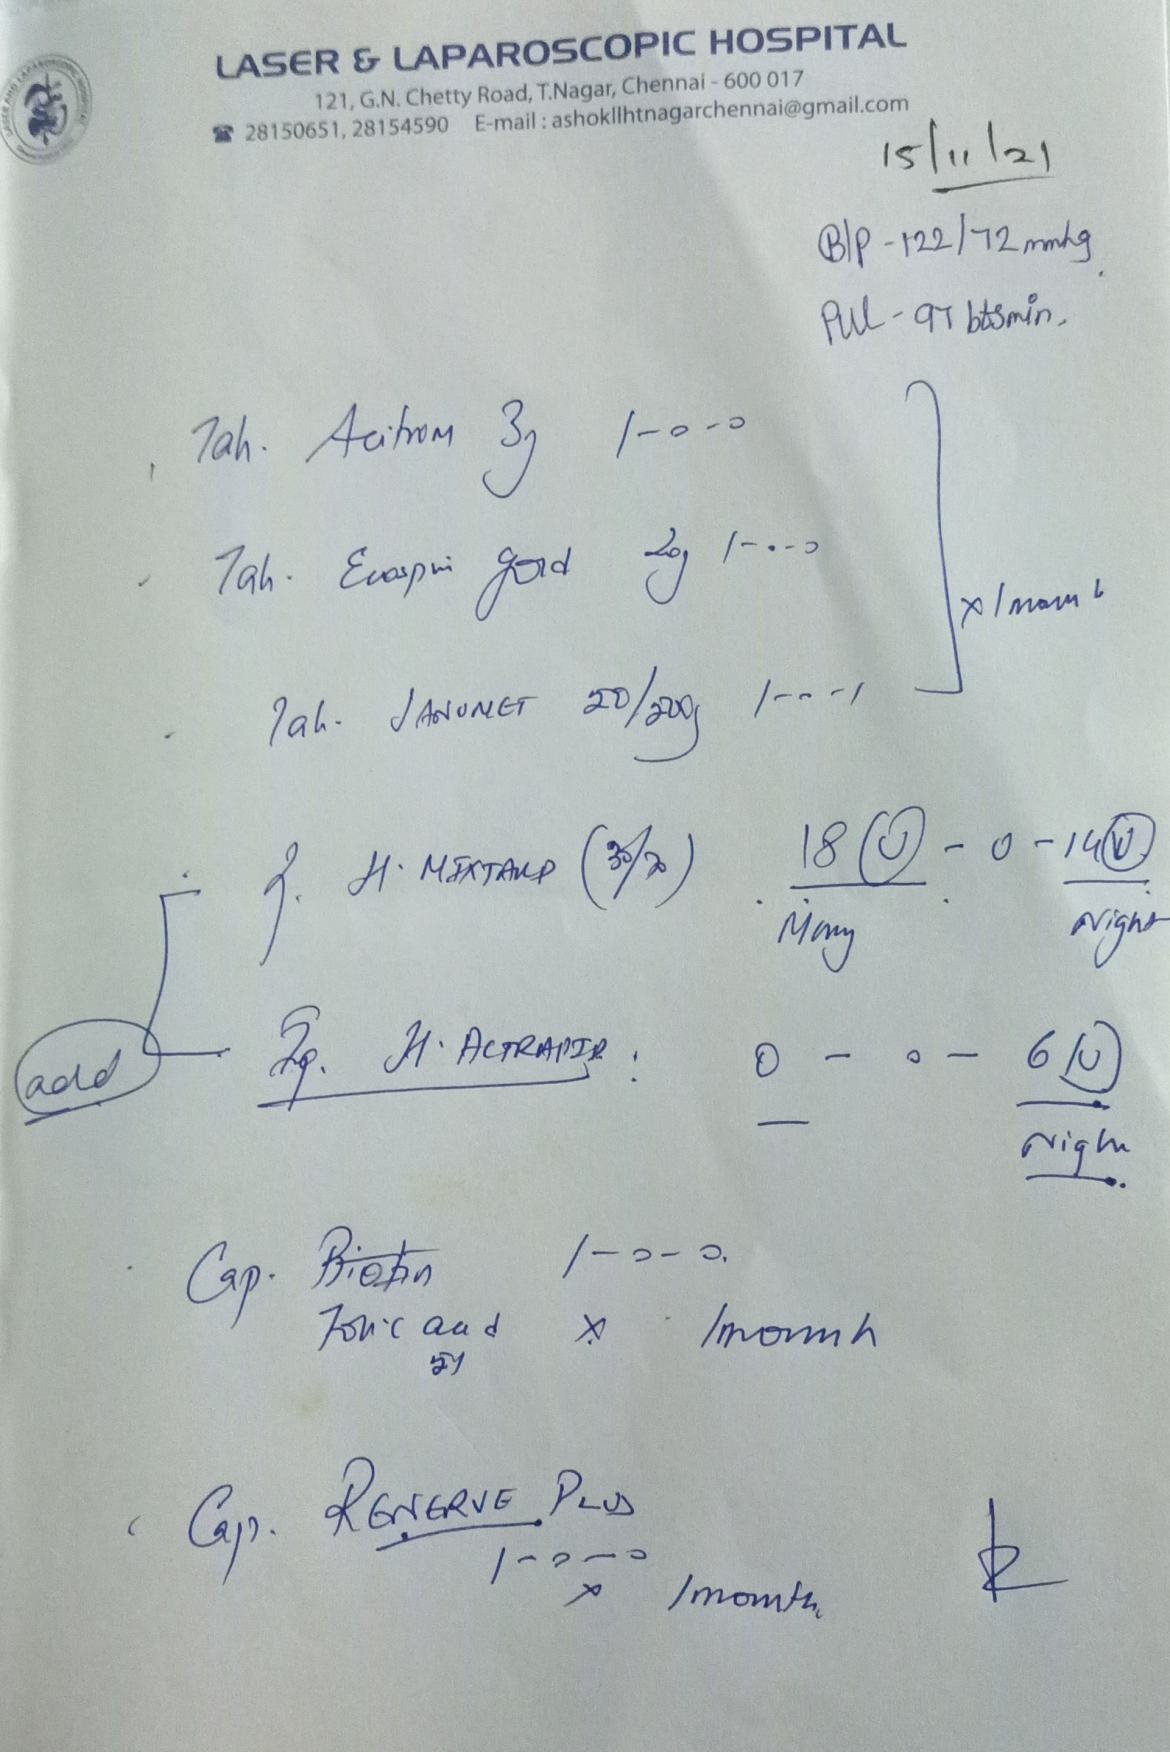 LASER & LAPAROSCOPIC HOSPITAL
121, G.N. Chetty Road, T.Nagar, Chennai - 600 017
☎ 28150651, 28154590 E-mail : ashokllhtnagarchennai@gmail.com
15/11/21
B/P - 122/72 mmhg
Pul - 97 bts min.
Tab. Acitrom 3g 1-0-0
Tab. Ecospri gold 20g 1-0-0
x 1 mon
Tab. JANUMET 50/500g 1-0-1
H. MIXTARD (30/70) 18 U - 0 - 14 U
Night
add H. ACTRAPID : 0 - 0 - 6 U
Night
Cap. Biotin 1-0-0.
Folic acid x 1 month
Cap. RENERVE PLUS
1-0-0
x 1 month